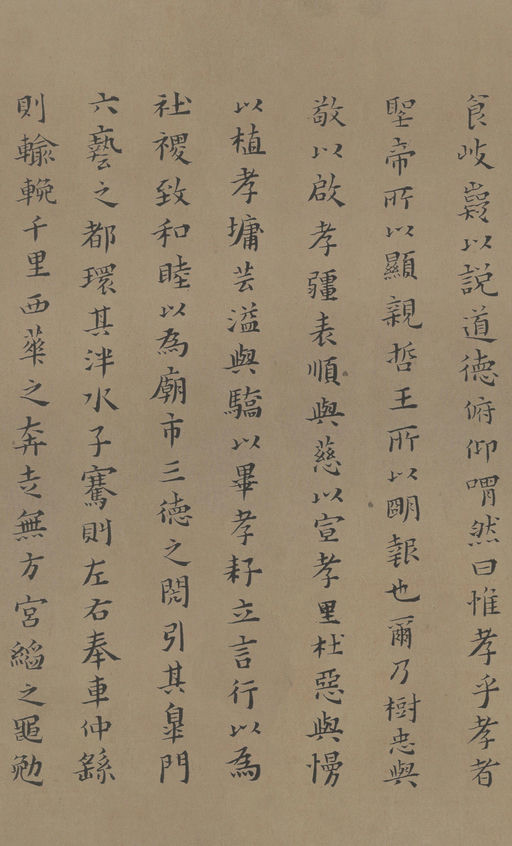 食岐嶷以說道德俯仰喟然曰惟孝乎孝者
聖帝所以顯親哲王所以朙報也爾乃樹忠與
敬以啟孝疆表順與慈以宣孝里杜惡與慢
以植孝墉芸溢與驕以畢孝耔立言行以為
社稷致和睦以為廟市三德之閎引其皐門
六藝之都環其泮水子騫則左右奉車仲繇
則輸輓千里西華之奔走無方宮縚之黽勉